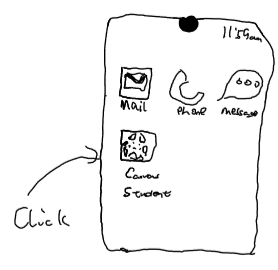 11:59am
Mail
Phone
message
Canvas
Student
Click